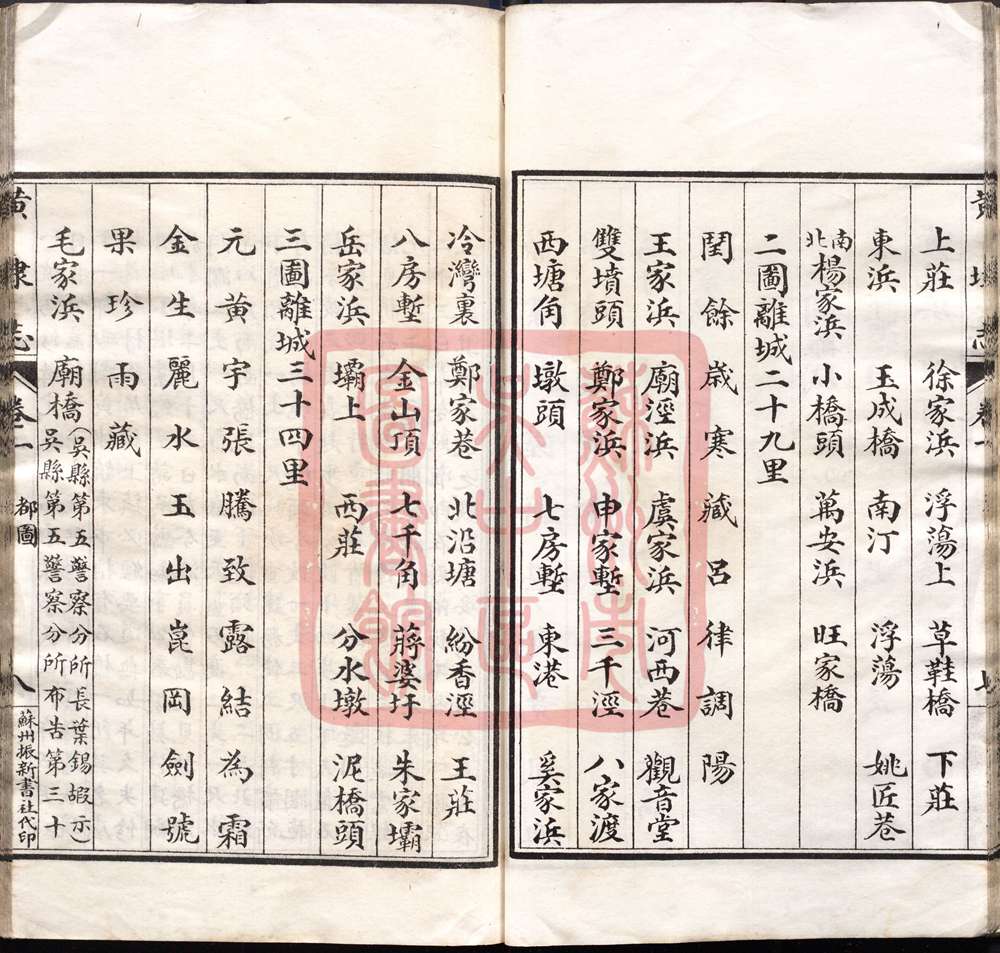 黄埭志 卷一 七
上莊 徐家浜 浮蕩上 草鞋橋 下莊
東浜 玉成橋 南汀 浮蕩 姚匠巷
南北楊家浜 小橋頭 萬安浜 旺家橋
二圖離城二十九里
閏餘歲寒藏呂律調陽
王家浜 廟涇浜 虞家浜 河西巷 觀音堂
雙墳頭 鄭家浜 申家塹 三千涇 八家渡
西塘角 墩頭 七房塹 東港 奚家浜
冷灣裏 鄭家巷 北沿塘 紛香涇 王莊
八房塹 金山頂 七千角 蔣婆圩 朱家壩
岳家浜 壩上 西莊 分水墩 泥橋頭
三圖離城三十四里
元黄宇張騰致露結為霜
金生麗水玉出崑岡劍號
果珍雨藏
毛家浜 廟橋(吳縣第五警察分所長葉錫嘏示)
吳縣第五警察分所布告第三十
黄埭志 卷一 都圖 八 蘇州振新書社代印
蘇州市吳中區圖書館